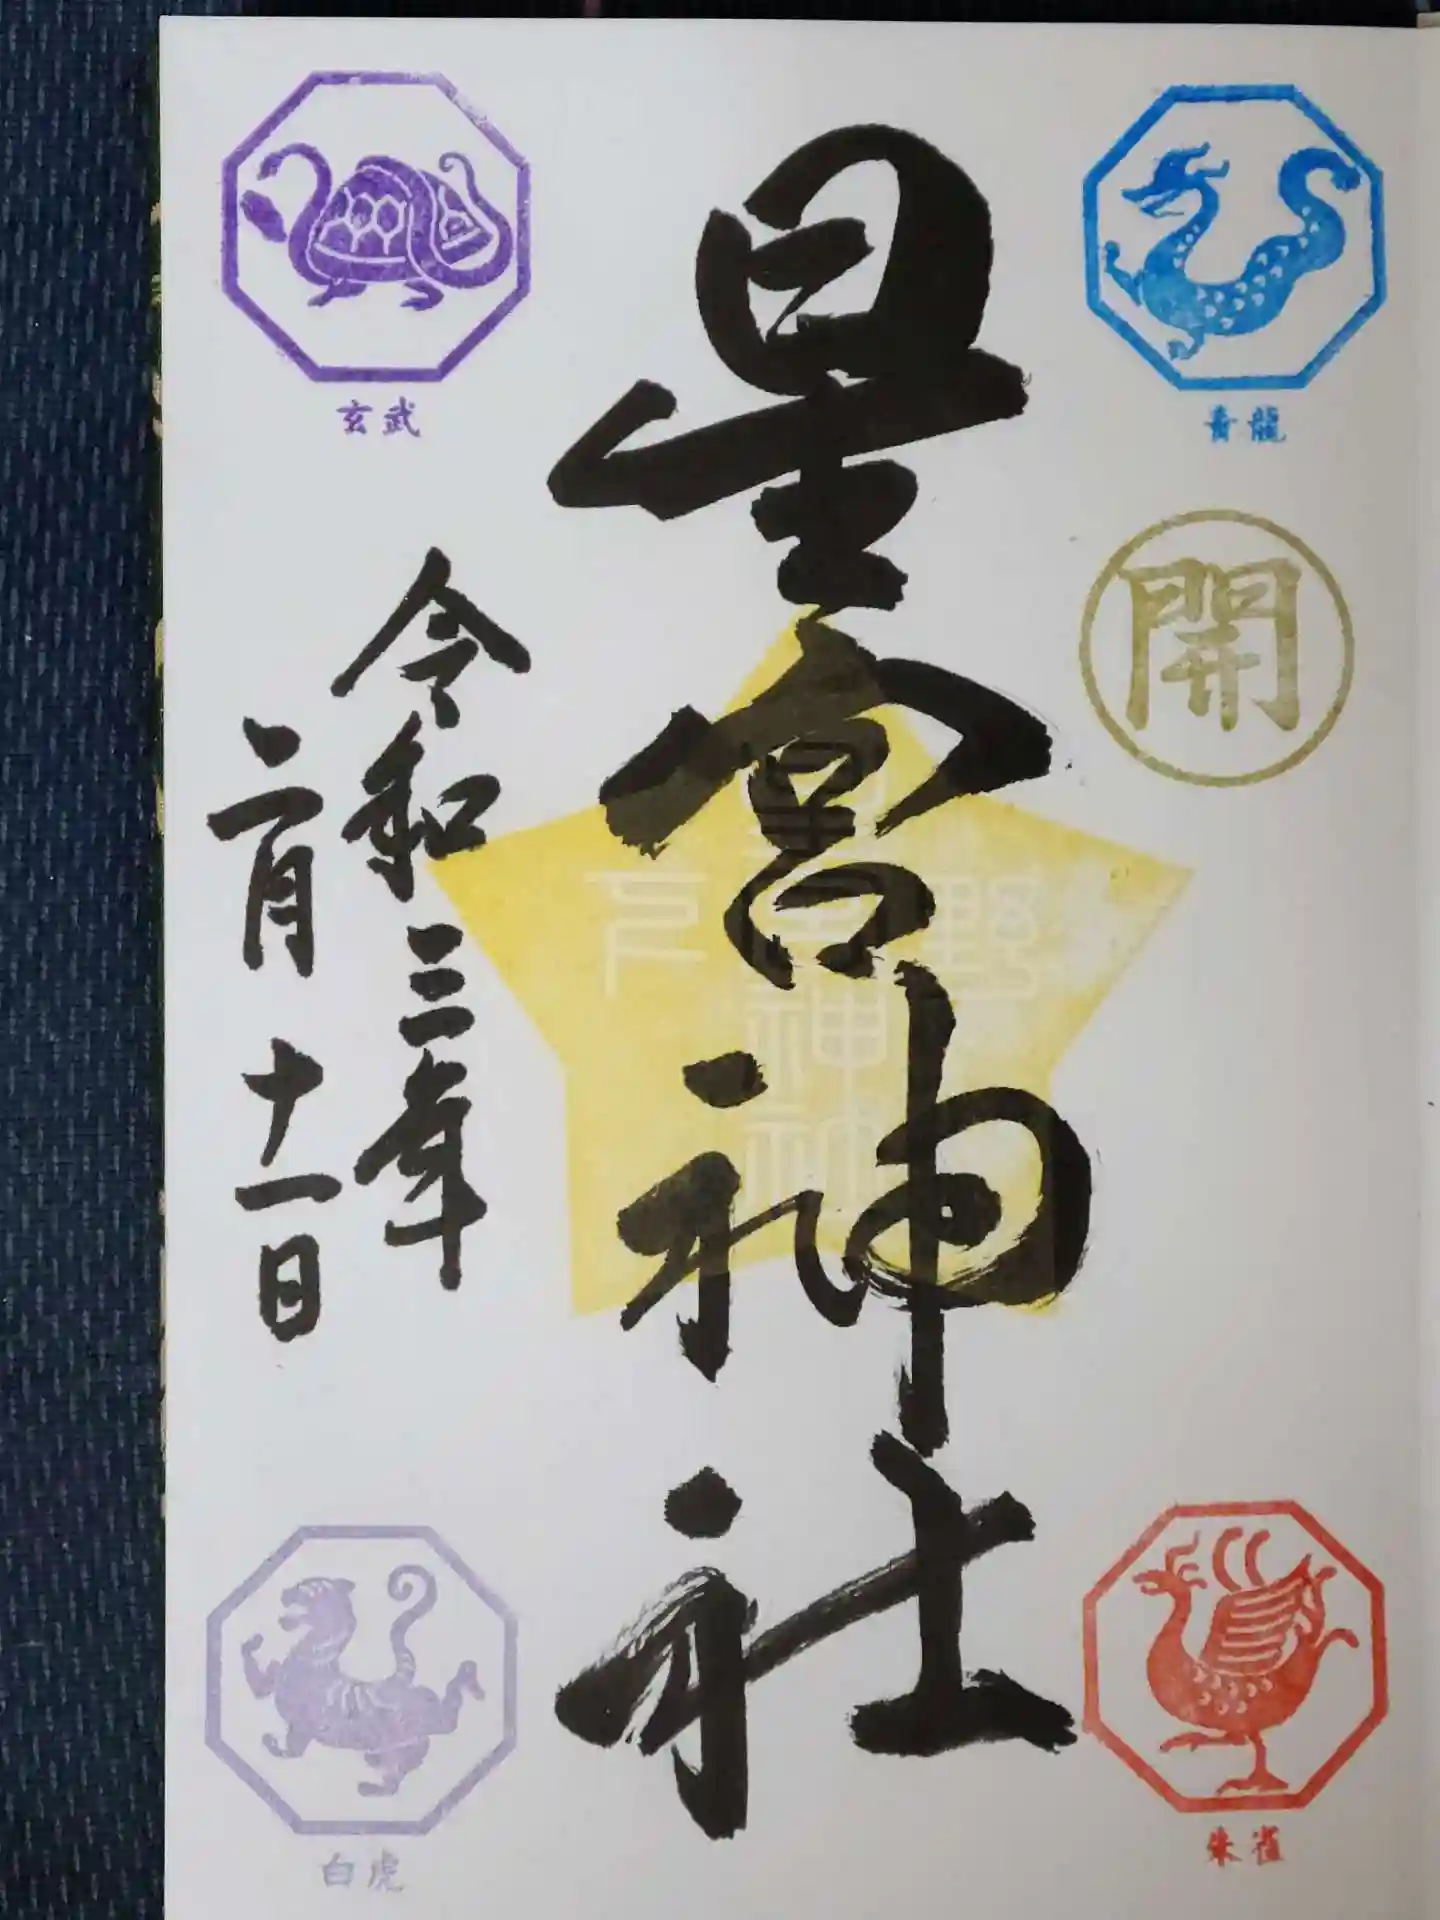 青龍
開
朱雀
星宮神社
令和三年
二月十一日
玄武
白虎